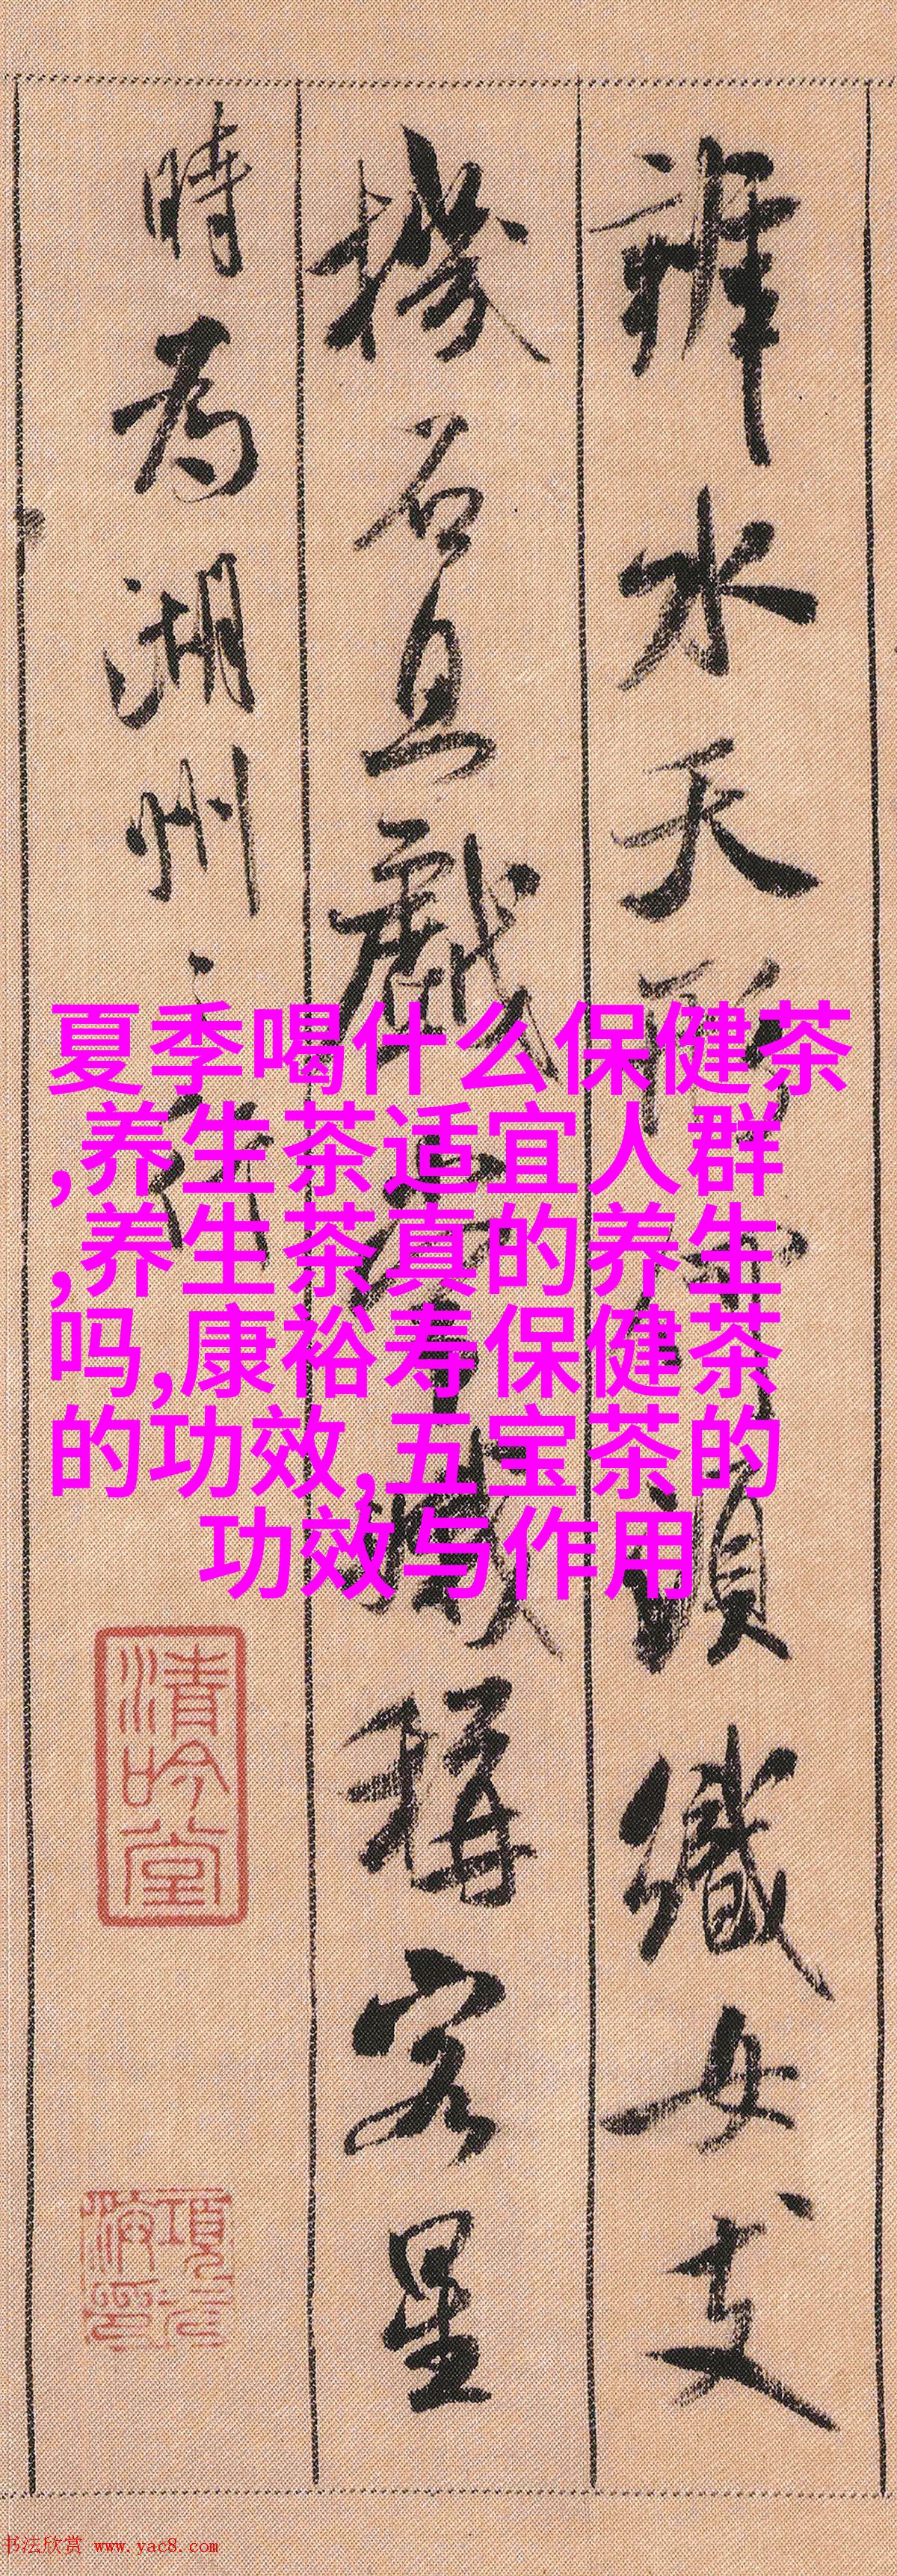 辨水天形霄頭織女支
機石且戲
織稱客星
時為湖州之行
夏季喝什么保健茶
,养生茶适宜人群
,养生茶真的养生
吗,康裕寿保健茶
的功效,五宝茶的
功效与作用
清吟堂
书法欣赏 www.yac8.com